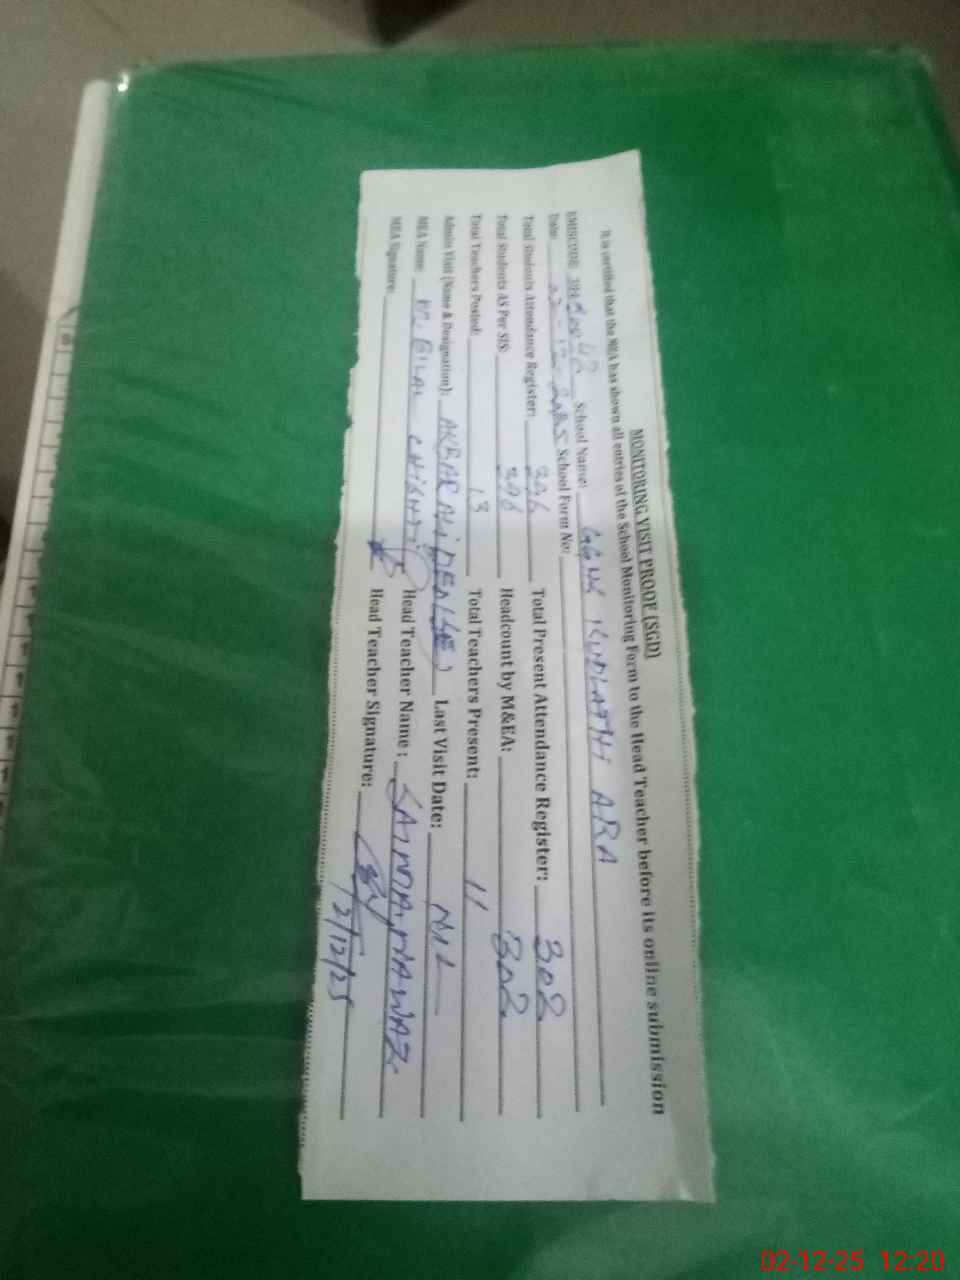 MONITORING VISIT PROOF (SGD)
It is certified that the MEA has shown all entries of the School Monitoring Form to the Head Teacher before its online submission
EMISCODE: School Name: KUDLATHI ARA
Date: 02-12-2025 School Form No:
Total Students Attendance Register: Total Present Attendance Register: 302
Total Students AS Per SIS: 396 Headcount by M&EA: 302
Total Teachers Posted: 13 Total Teachers Present: 11
Admin Visit (Name & Designation): AKBAR ALI Last Visit Date: NIL
MEA Name: M. BILAL CHISHTI Head Teacher Name : SAIMA NAWAZ
MEA Signature: Head Teacher Signature:
2/12/25
02-12-25 12:20